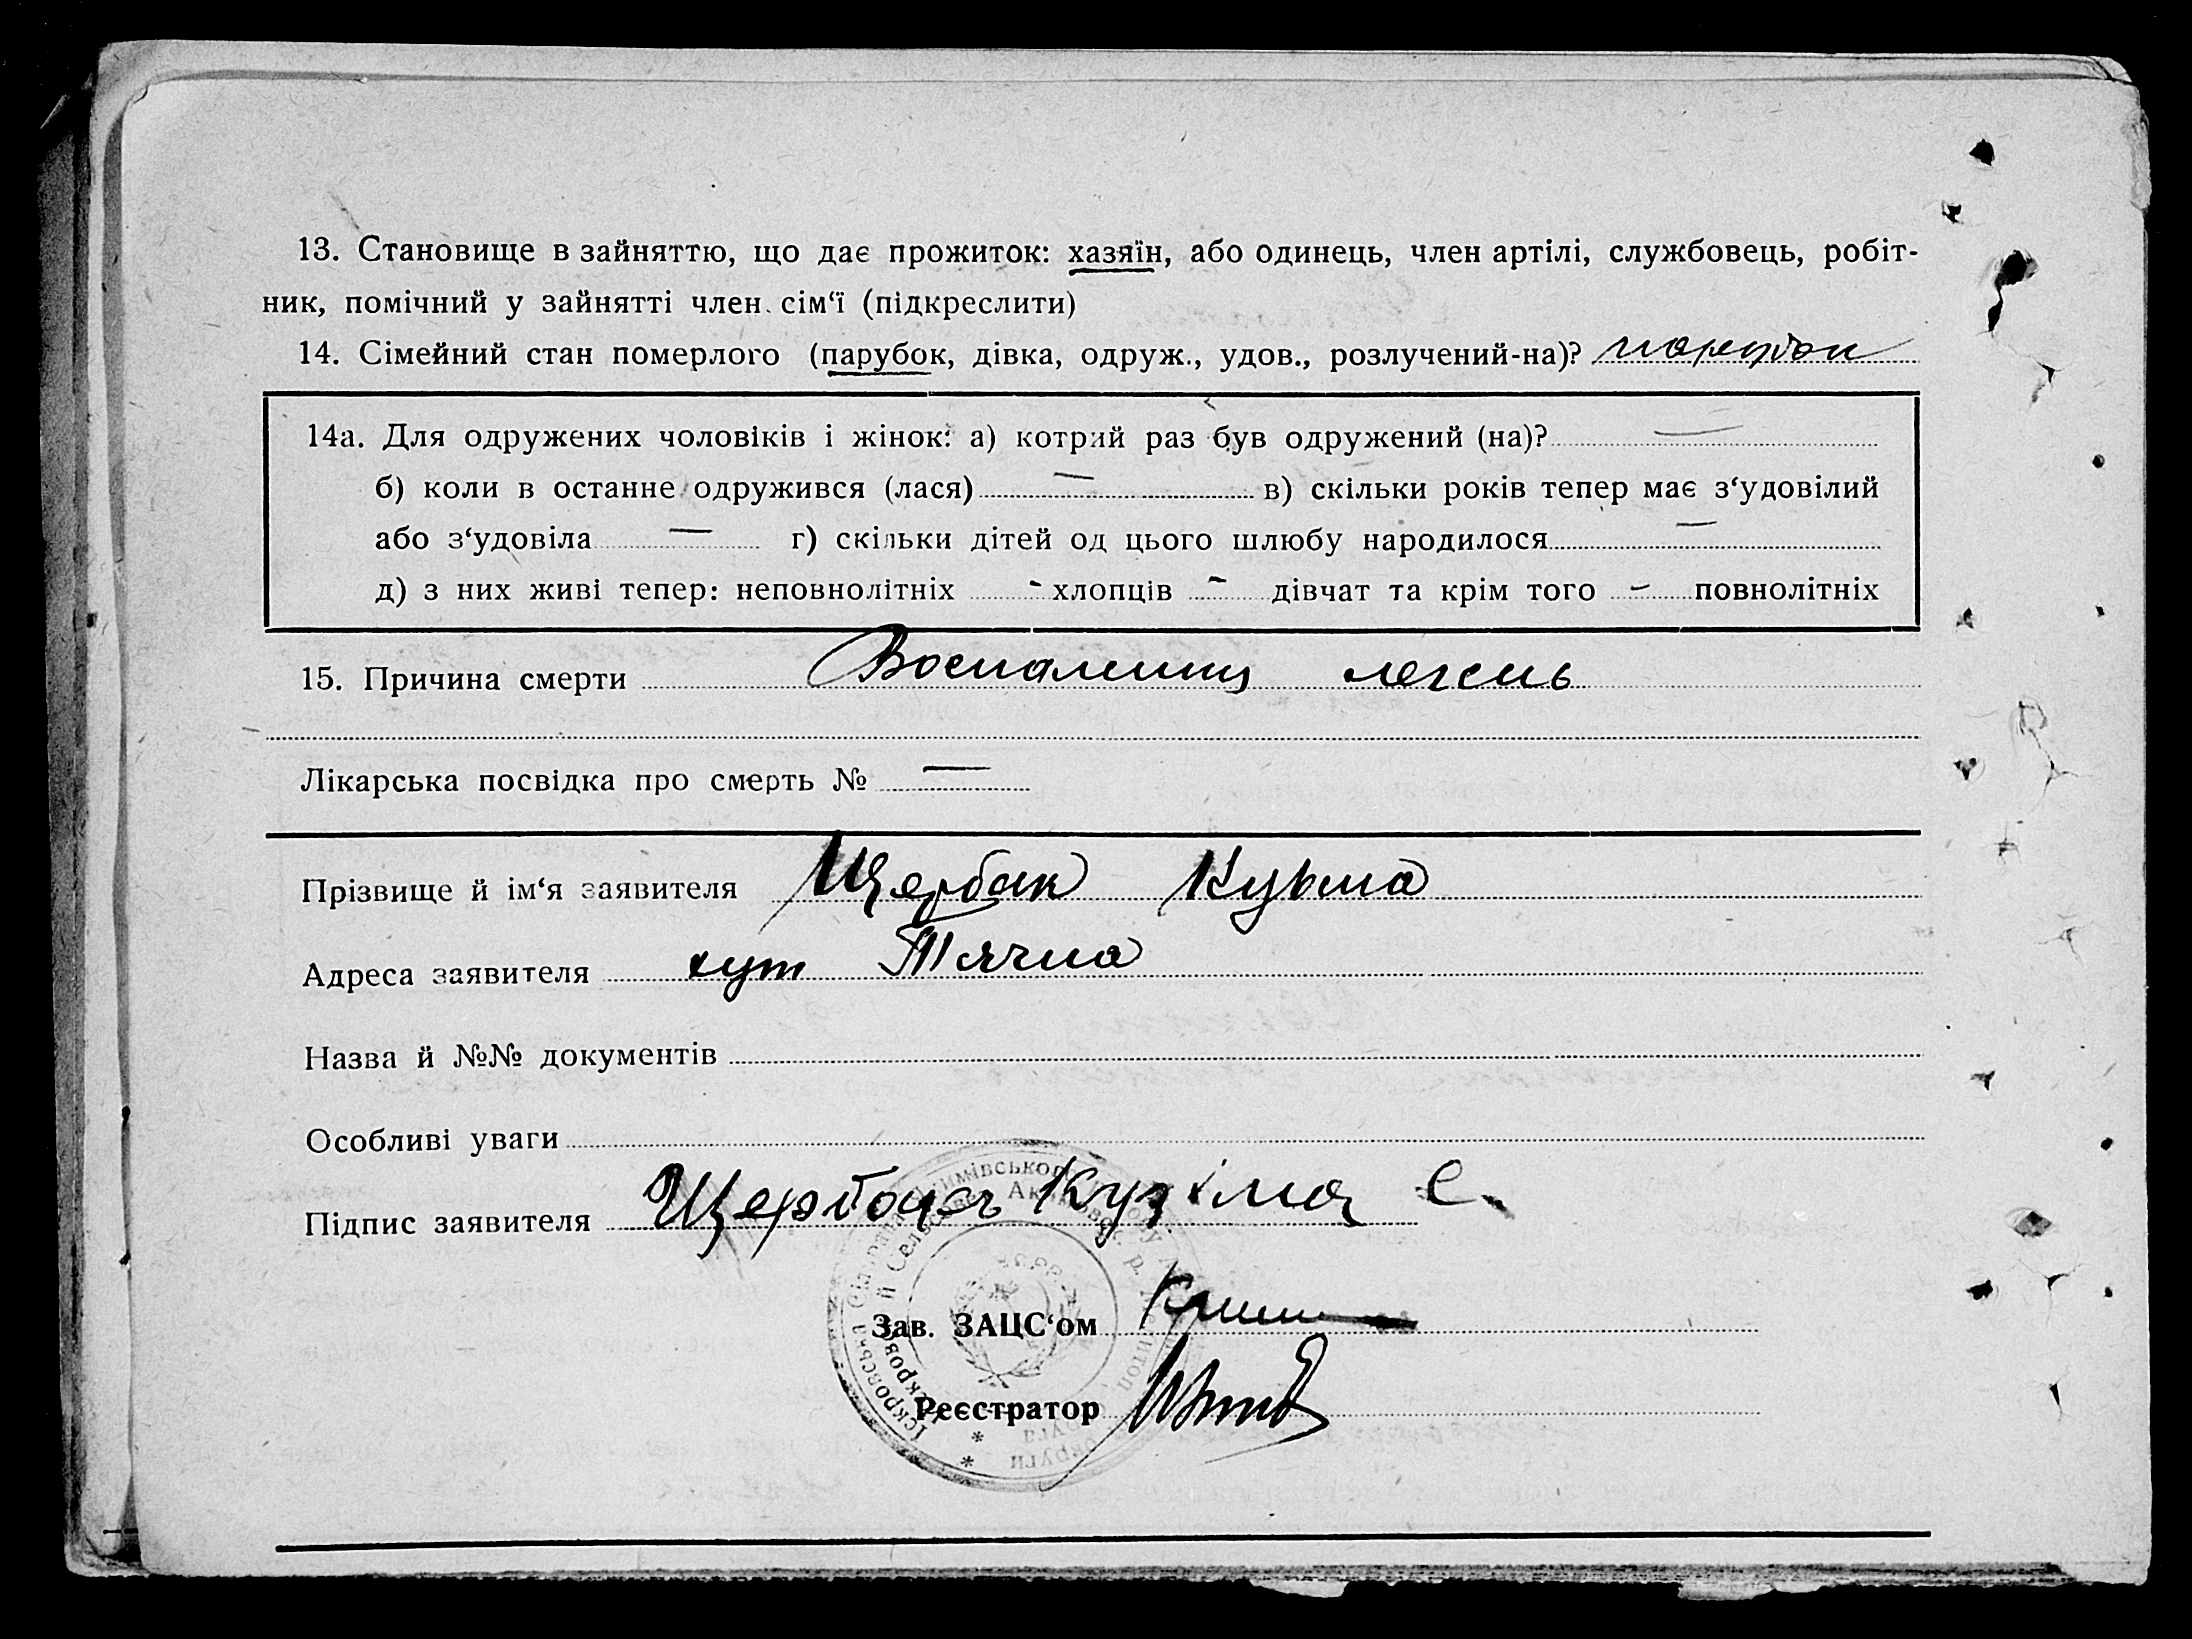 13. Становище в зайняттю, що дає прожиток: хазяїн, або одинець, член артілі, службовець, робіт-
ник, помічний у зайнятті член сім‘ї (підкреслити)
14. Сімейний стан померлого (парубок, дівка, одруж., удов., розлучений-на)? парубок
14а. Для одружених чоловіків і жінок: а) котрий раз був одружений (на)? —
б) коли в останнє одружився (лася) — в) скільки років тепер має з‘удовілий
або з‘удовіла — г) скільки дітей од цього шлюбу народилося —
д) з них живі тепер: неповнолітніх - хлопців - дівчат та крім того - повнолітніх
15. Причина смерти Воспалениц легень
Лікарська посвідка про смерть № —
Прізвище й ім‘я заявителя Щербак Кузьма
Адреса заявителя хут Тячна
Назва й №№ документів
Особливі уваги
Підпис заявителя Щербак Кузіма С.
Зав. ЗАЦС‘ом
Реєстратор